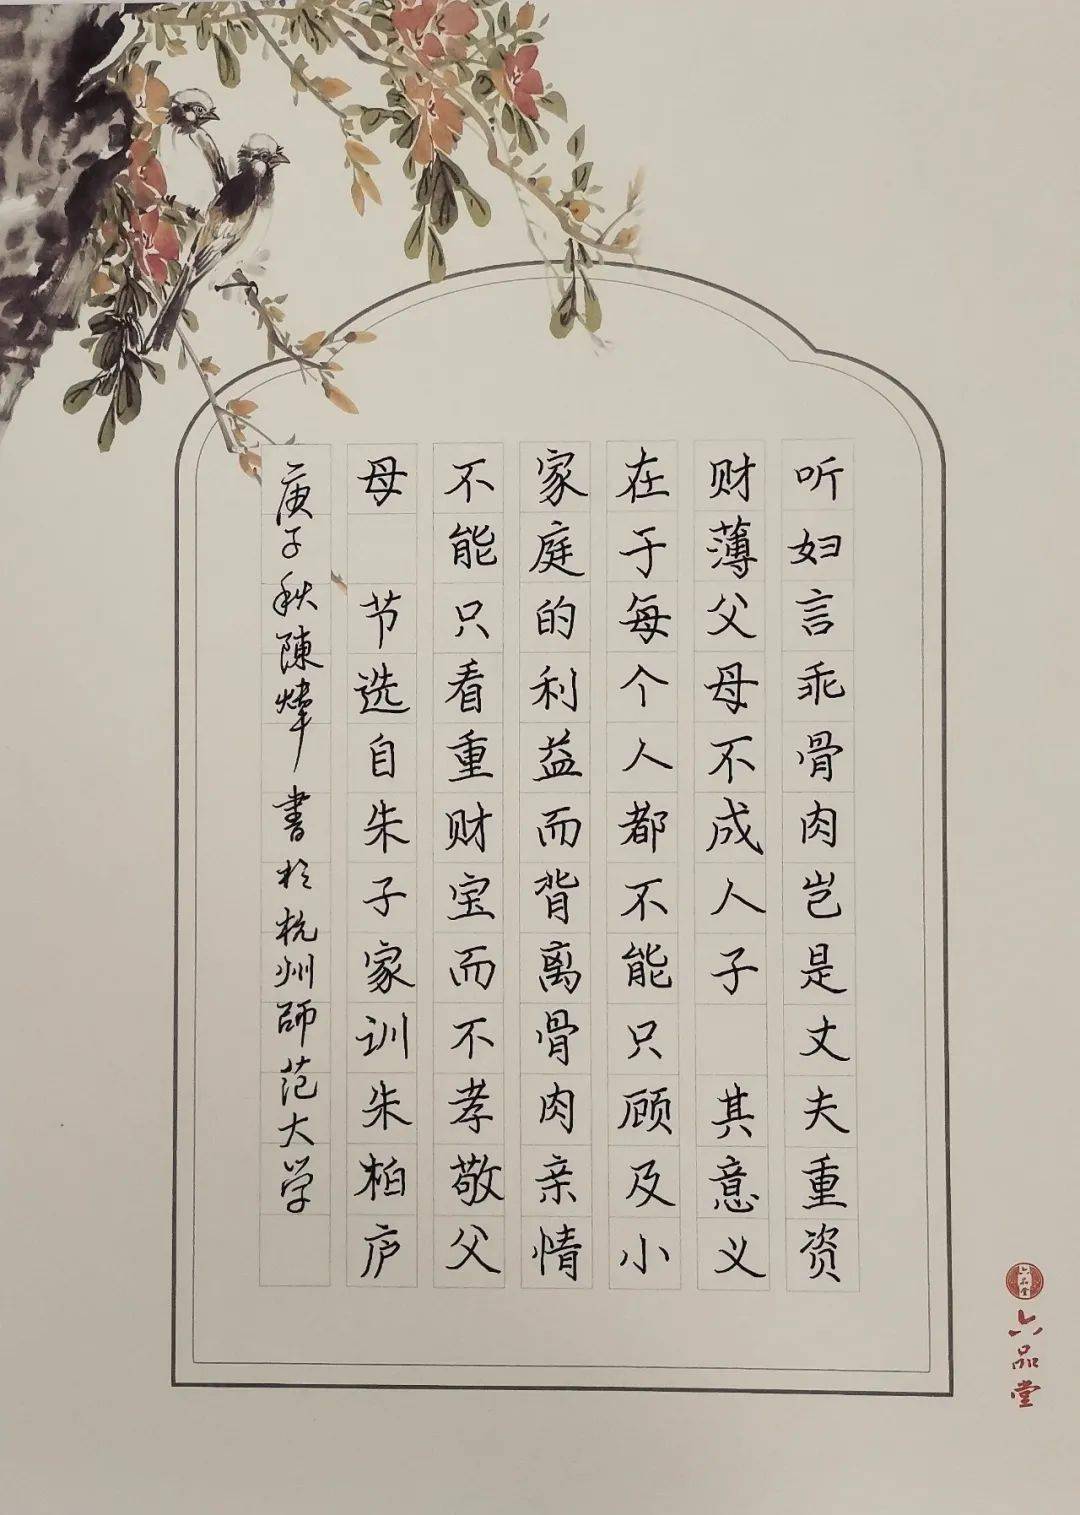 听妇言乖骨肉岂是丈夫重资
财薄父母不成人子 其意义
在于每个人都不能只顾及小
家庭的利益而背离骨肉亲情
不能只看重财宝而不孝敬父
母 节选自朱子家训朱柏庐
庚子秋陳煒書於杭州師范大学
六品堂
六品堂